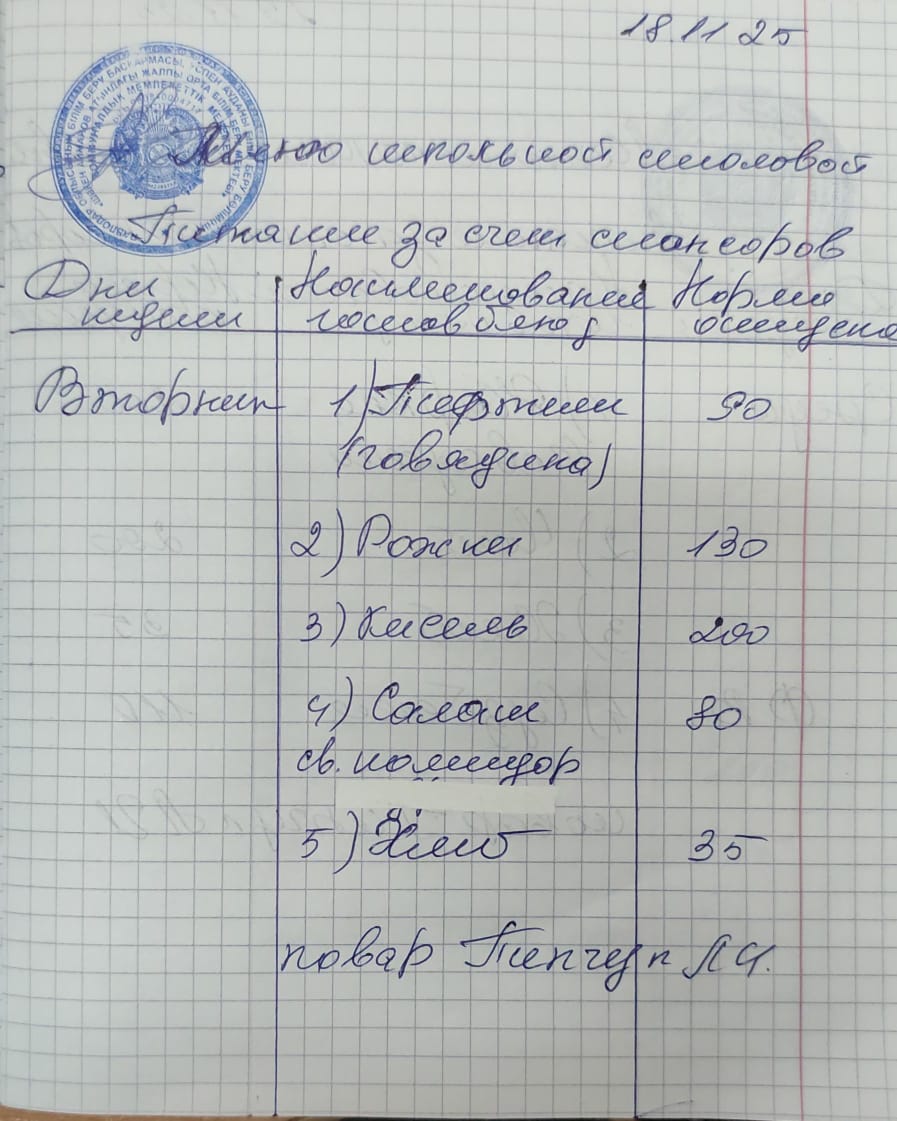 18.11.25
Меню школьной столовой
Питание за счет спонсоров
Дни недели
Наименование готов блюд
Норма отпуска
Вторник 1) Тефтели 90
(говядина)
2) Рожки 130
3) Кисель 200
4) Салат 80
св. помидор
5) Хлеб 35
повар